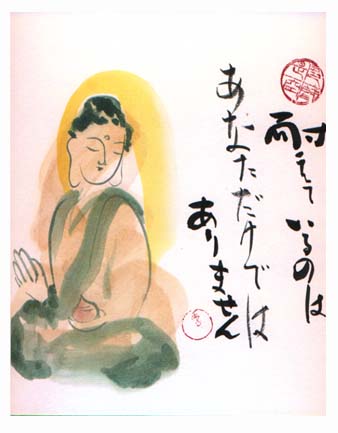 耐えているのは
あなただけでは
ありません